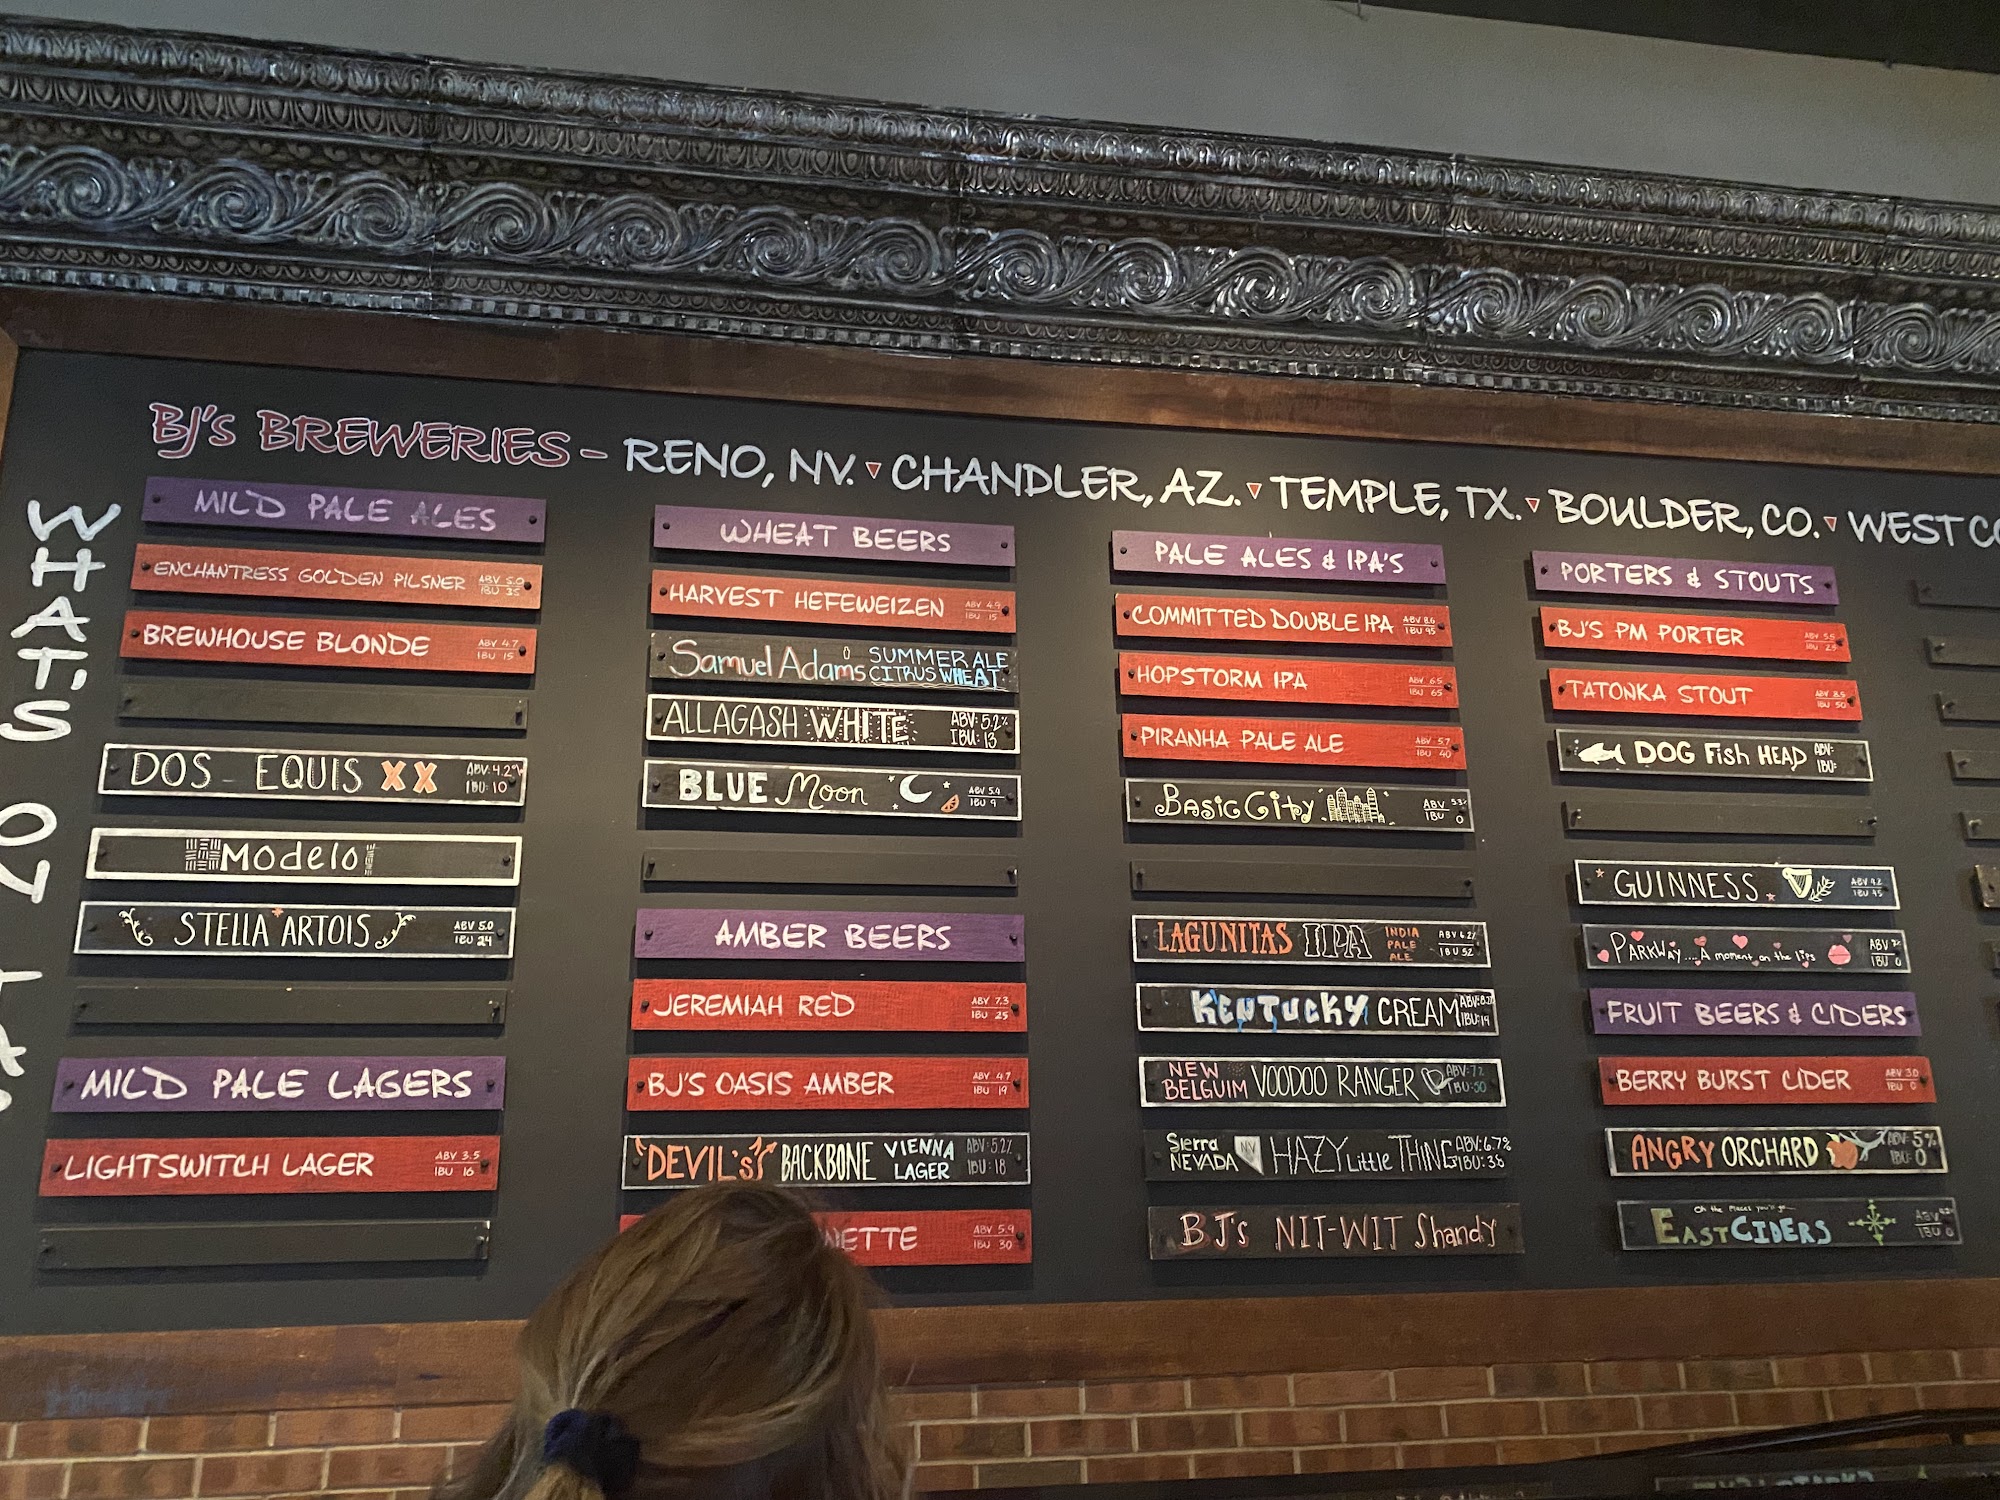 BJ's BREWERIES – RENO, NV. CHANDLER, AZ. TEMPLE, TX. BOULDER, CO. WEST
WHAT'S ON
MILD PALE ALES
ENCHANTRESS GOLDEN PILSNER ABV 5.0 IBU 35
BREWHOUSE BLONDE ABV 4.7 IBU 15
DOS EQUIS XX ABV: 4.2% IBU: 10
Modelo
STELLA ARTOIS ABV 5.0 IBU 24
MILD PALE LAGERS
LIGHTSWITCH LAGER ABV 3.5 IBU 16
WHEAT BEERS
HARVEST HEFEWEIZEN ABV 4.9 IBU 15
Samuel Adams SUMMER ALE CITRUS WHEAT
ALLAGASH WHITE ABV: 5.2% IBU: 13
BLUE Moon ABV 5.4 IBU 9
AMBER BEERS
JEREMIAH RED ABV 7.3 IBU 25
BJ'S OASIS AMBER ABV 4.7 IBU 19
DEVIL'S BACKBONE VIENNA LAGER ABV: 5.2% IBU: 18
NETTE ABV 5.9 IBU 30
PALE ALES & IPA'S
COMMITTED DOUBLE IPA ABV 8.6 IBU 95
HOPSTORM IPA ABV 6.5 IBU 65
PIRANHA PALE ALE ABV 5.7 IBU 40
BASIC CITY ABV 5.3% IBU 0
LAGUNITAS IPA INDIA PALE ALE ABV 6.2% IBU 52
KENTUCKY CREAM ABV: 8.2% IBU: 19
NEW BELGUIM VOODOO RANGER ABV: 7% IBU: 50
Sierra NEVADA NV HAZY Little THING ABV: 6.7% IBU: 35
BJ's NIT-WIT Shandy
PORTERS & STOUTS
BJ'S PM PORTER ABV 5.5 IBU 25
TATONKA STOUT ABV 8.5 IBU 50
DOG Fish HEAD ABV: IBU:
GUINNESS ABV 4.2 IBU 45
PARKWAY.... A moment on the lips ABV 7% IBU 0
FRUIT BEERS & CIDERS
BERRY BURST CIDER ABV 3.0 IBU 0
ANGRY ORCHARD ABV: 5% IBU: 0
Oh the places you'll go...
EASTCIDERS ABV IBU 0